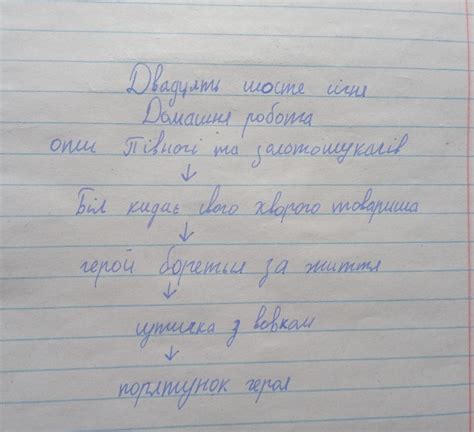 Двадцять шосте січня
Домашня робота
опис Півночі та золотошукачів
↓
Біл кидає свого хворого товариша
↓
герой бореться за життя
↓
сутичка з вовком
↓
порятунок героя